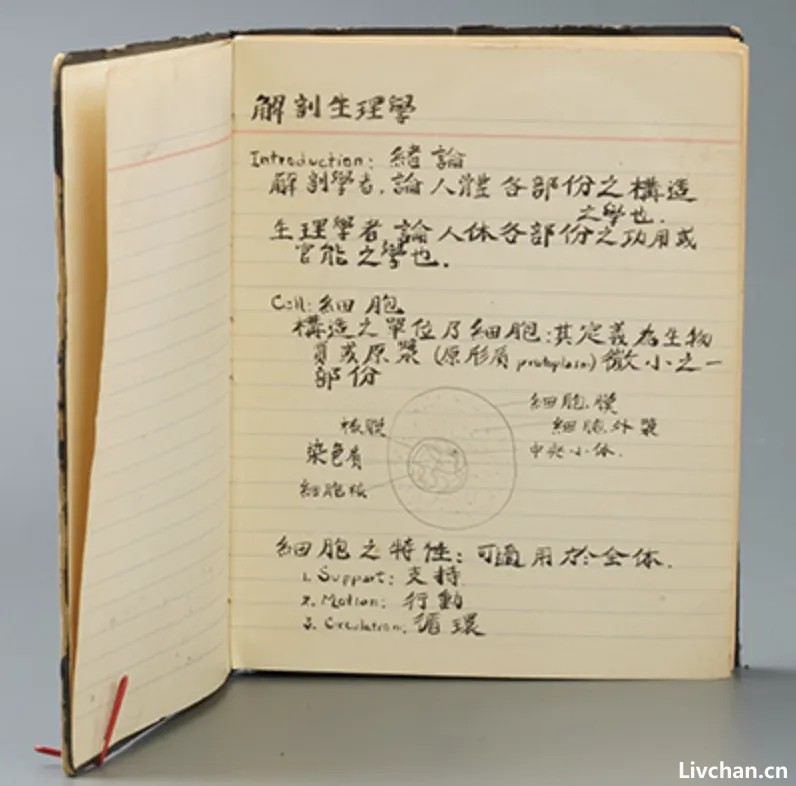 解剖生理學
Introduction: 緒論
解剖學者，論人體各部份之構造
之學也.
生理學者論人体各部份之功用或
官能之學也.
Cell: 細胞
構造之單位乃細胞:其定義為生物
質或原漿(原形质 protoplasm)微小之一
部份
細胞膜
核膜
細胞外漿
染色质
中央小体.
細胞核
細胞之特性: 可適用於全体.
1. Support: 支持
2. Motion: 行動
3. Circulation. 循環
Livchan.cn